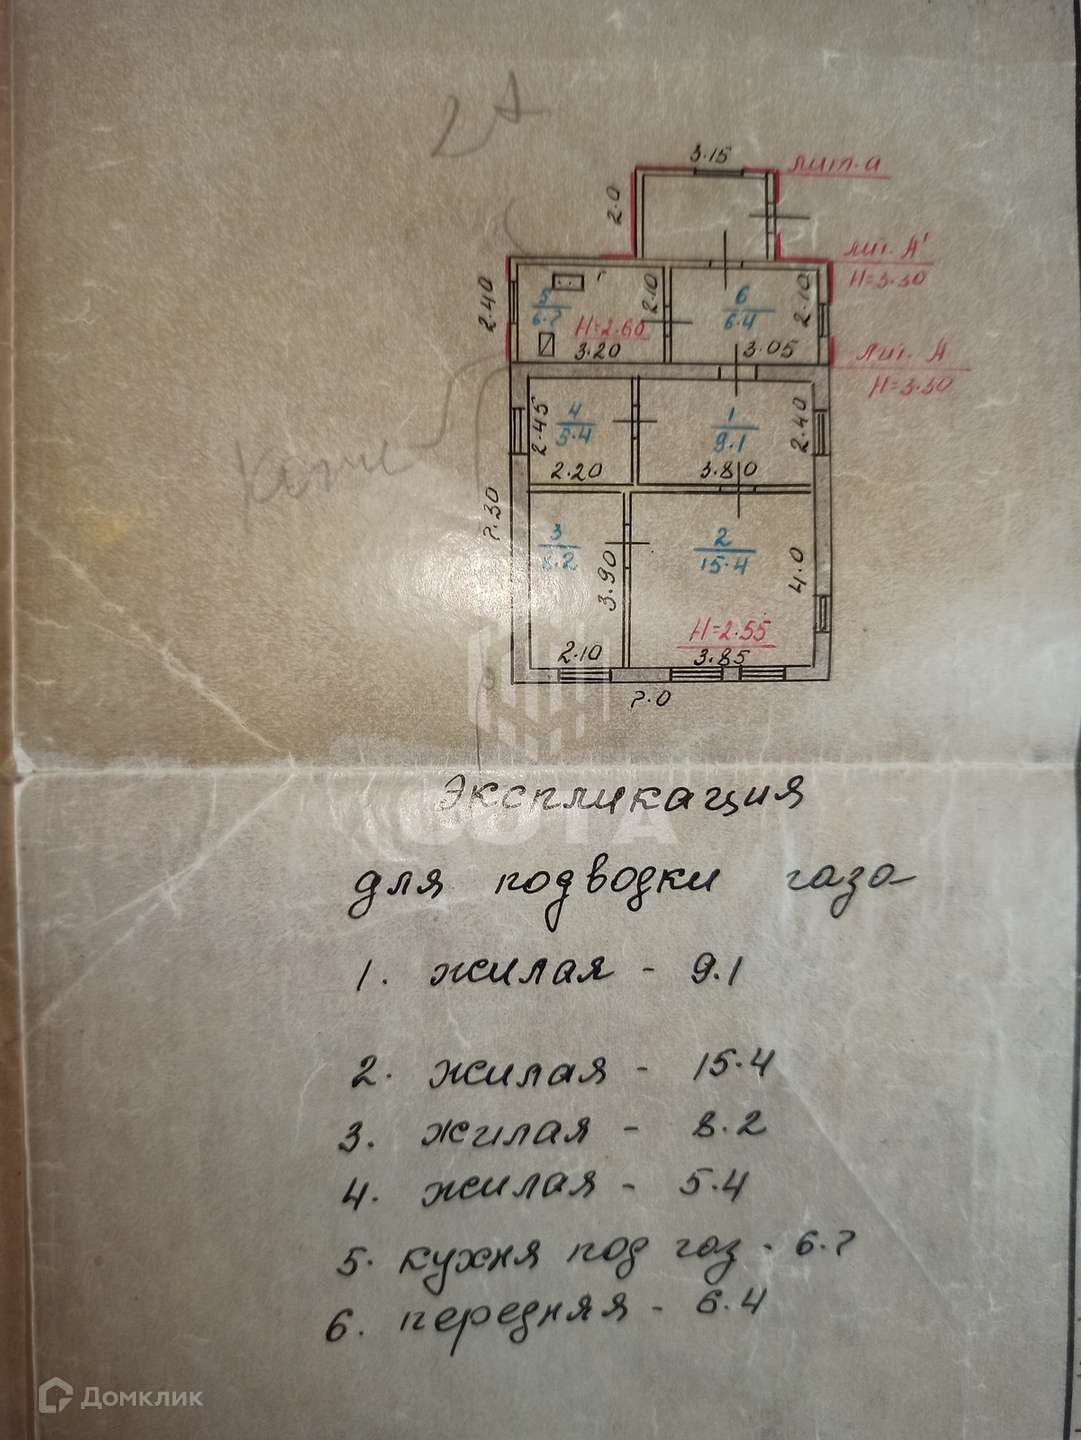 3.15
лит. а
2.0
лит. А'
Н=3.30
2.40
5
6.7
2.10
6
6.4
2.10
Н=2.60
3.20
3.05
лит. А
Н=3.30
2.45
4
5.4
1
9.1
2.40
2.20
3.80
7.30
3
8.2
3.90
2
15.4
4.0
Н=2.55
2.10
3.85
7.0
Экспликация
СОТА
для подводки газа
1. жилая - 9.1
2. жилая - 15.4
3. жилая - 8.2
4. жилая - 5.4
5. кухня под газ - 6.7
6. передняя - 6.4
Домклик